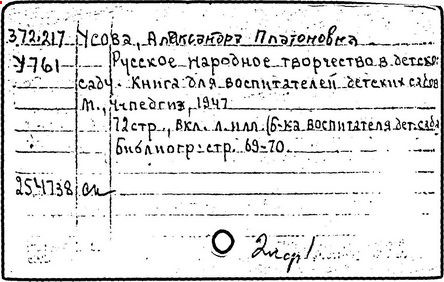 372.217 Усова, Александра Платоновна
У761 Русское народное творчество в детско
саду. Книга для воспитателей детских садов
М., Учпедгиз, 1947
72 стр., вкл. л. илл. (Б-ка воспитателя дет. сада
Библиогр: стр. 69-70.
254738